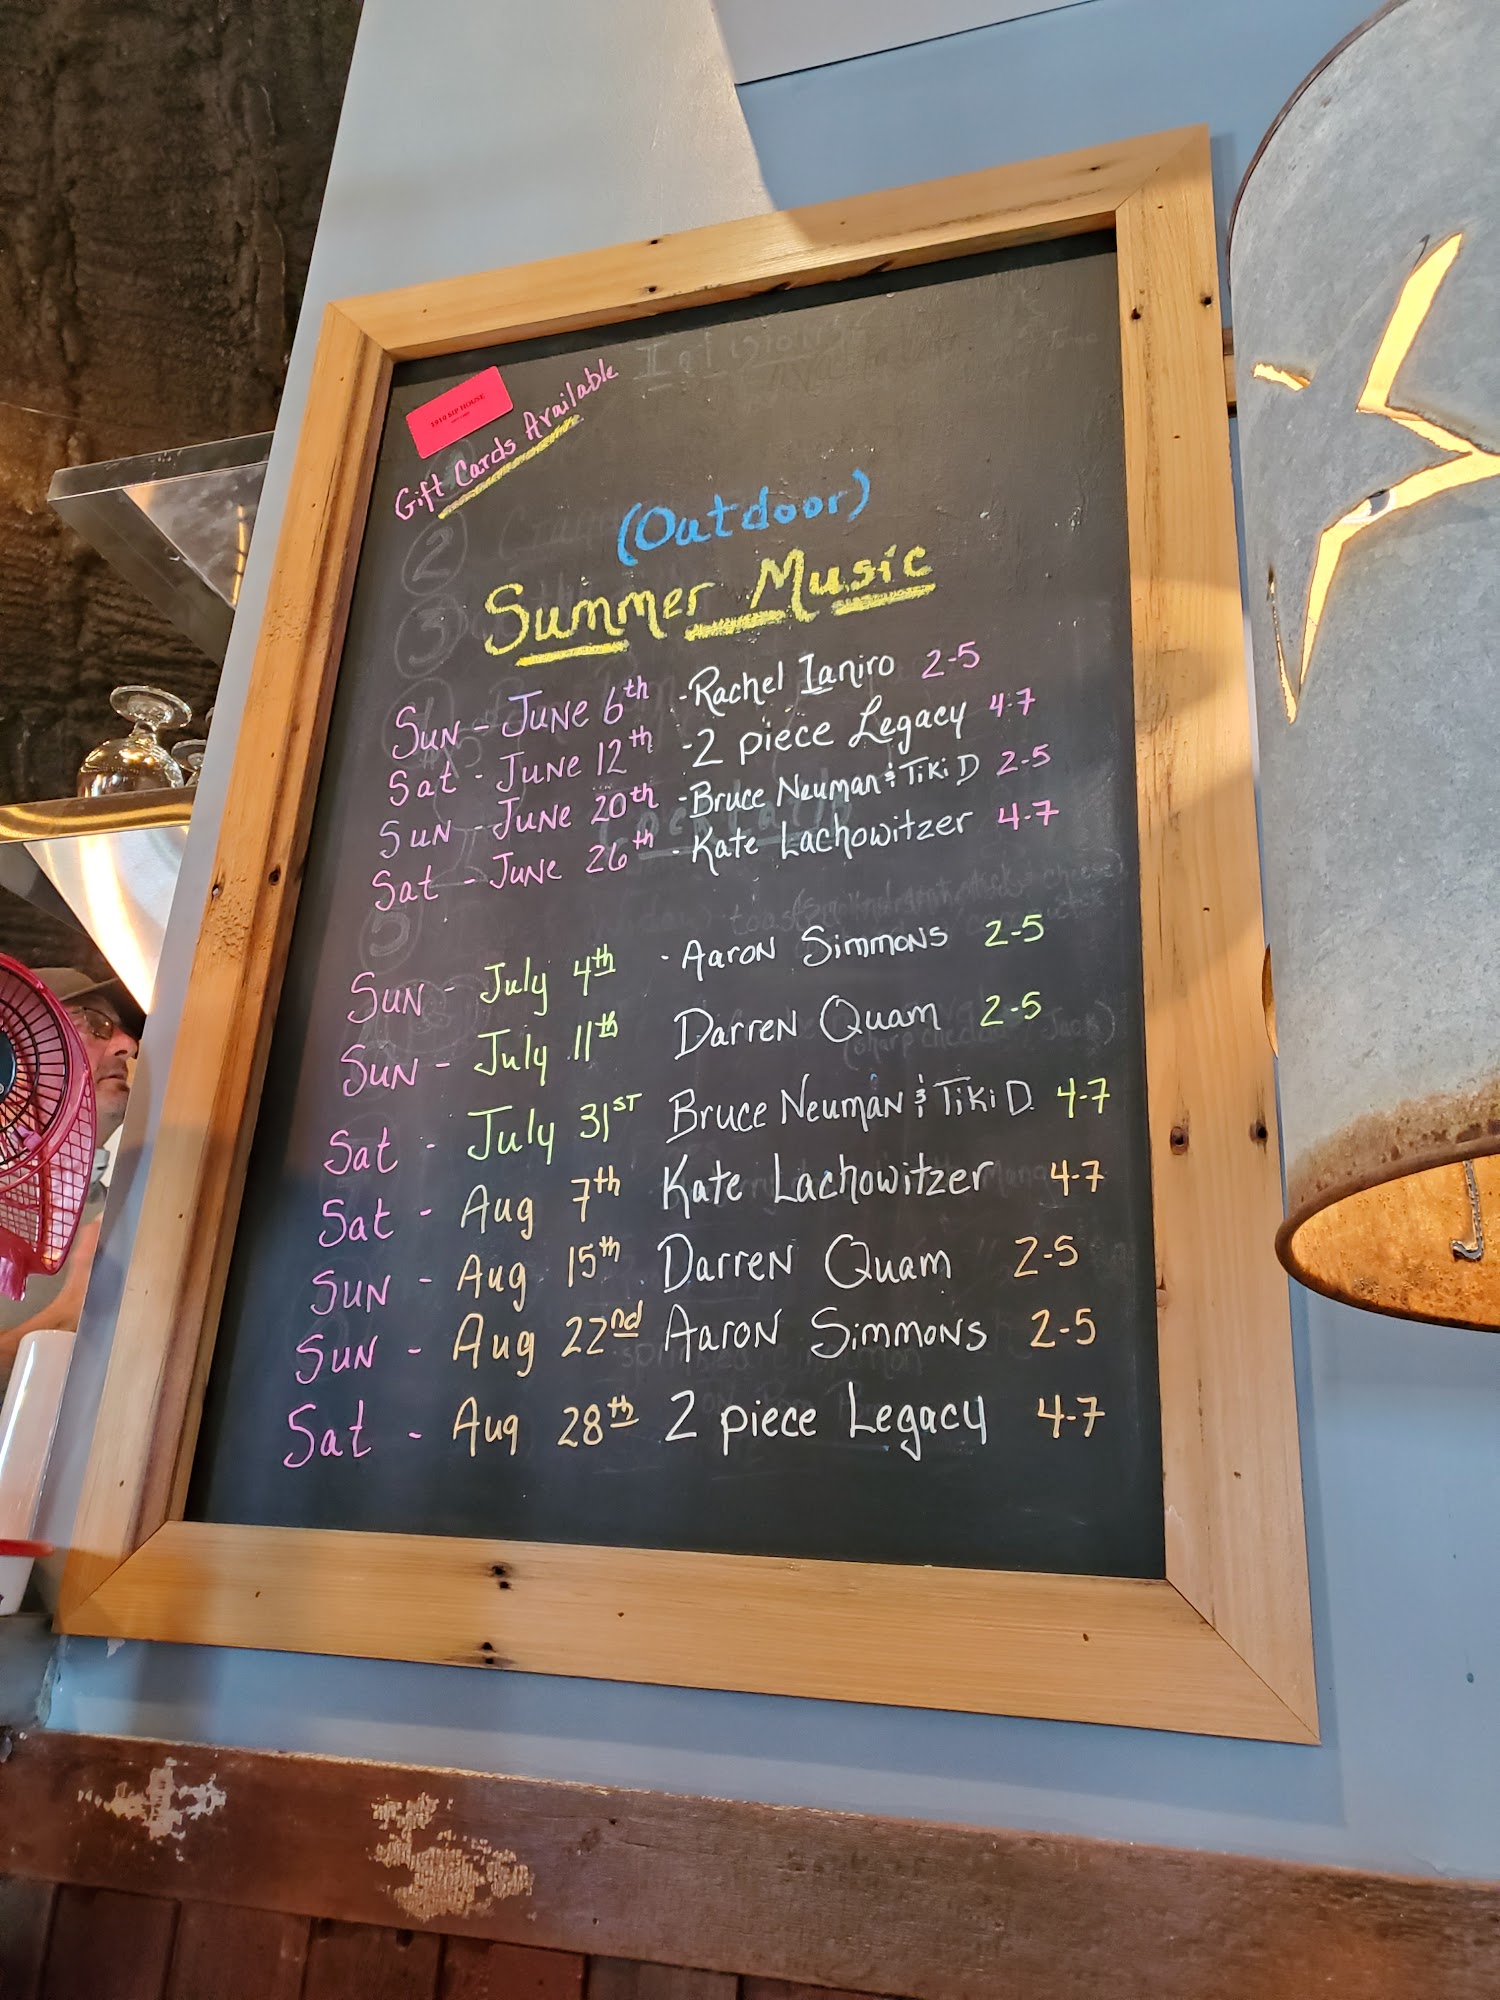 1910 SIP HOUSE
Gift Cards Available
(Outdoor)
Summer Music
Sun - June 6th - Rachel Ianiro 2-5
Sat - June 12th - 2 piece Legacy 4-7
Sun - June 20th - Bruce Neuman & Tiki D 2-5
Sat - June 26th - Kate Lachowitzer 4-7
Sun - July 4th - Aaron Simmons 2-5
Sun - July 11th Darren Quam 2-5
Sat - July 31st Bruce Neuman & Tiki D. 4-7
Sat - Aug 7th Kate Lachowitzer 4-7
Sun - Aug 15th Darren Quam 2-5
Sun - Aug 22nd Aaron Simmons 2-5
Sat - Aug 28th 2 piece Legacy 4-7